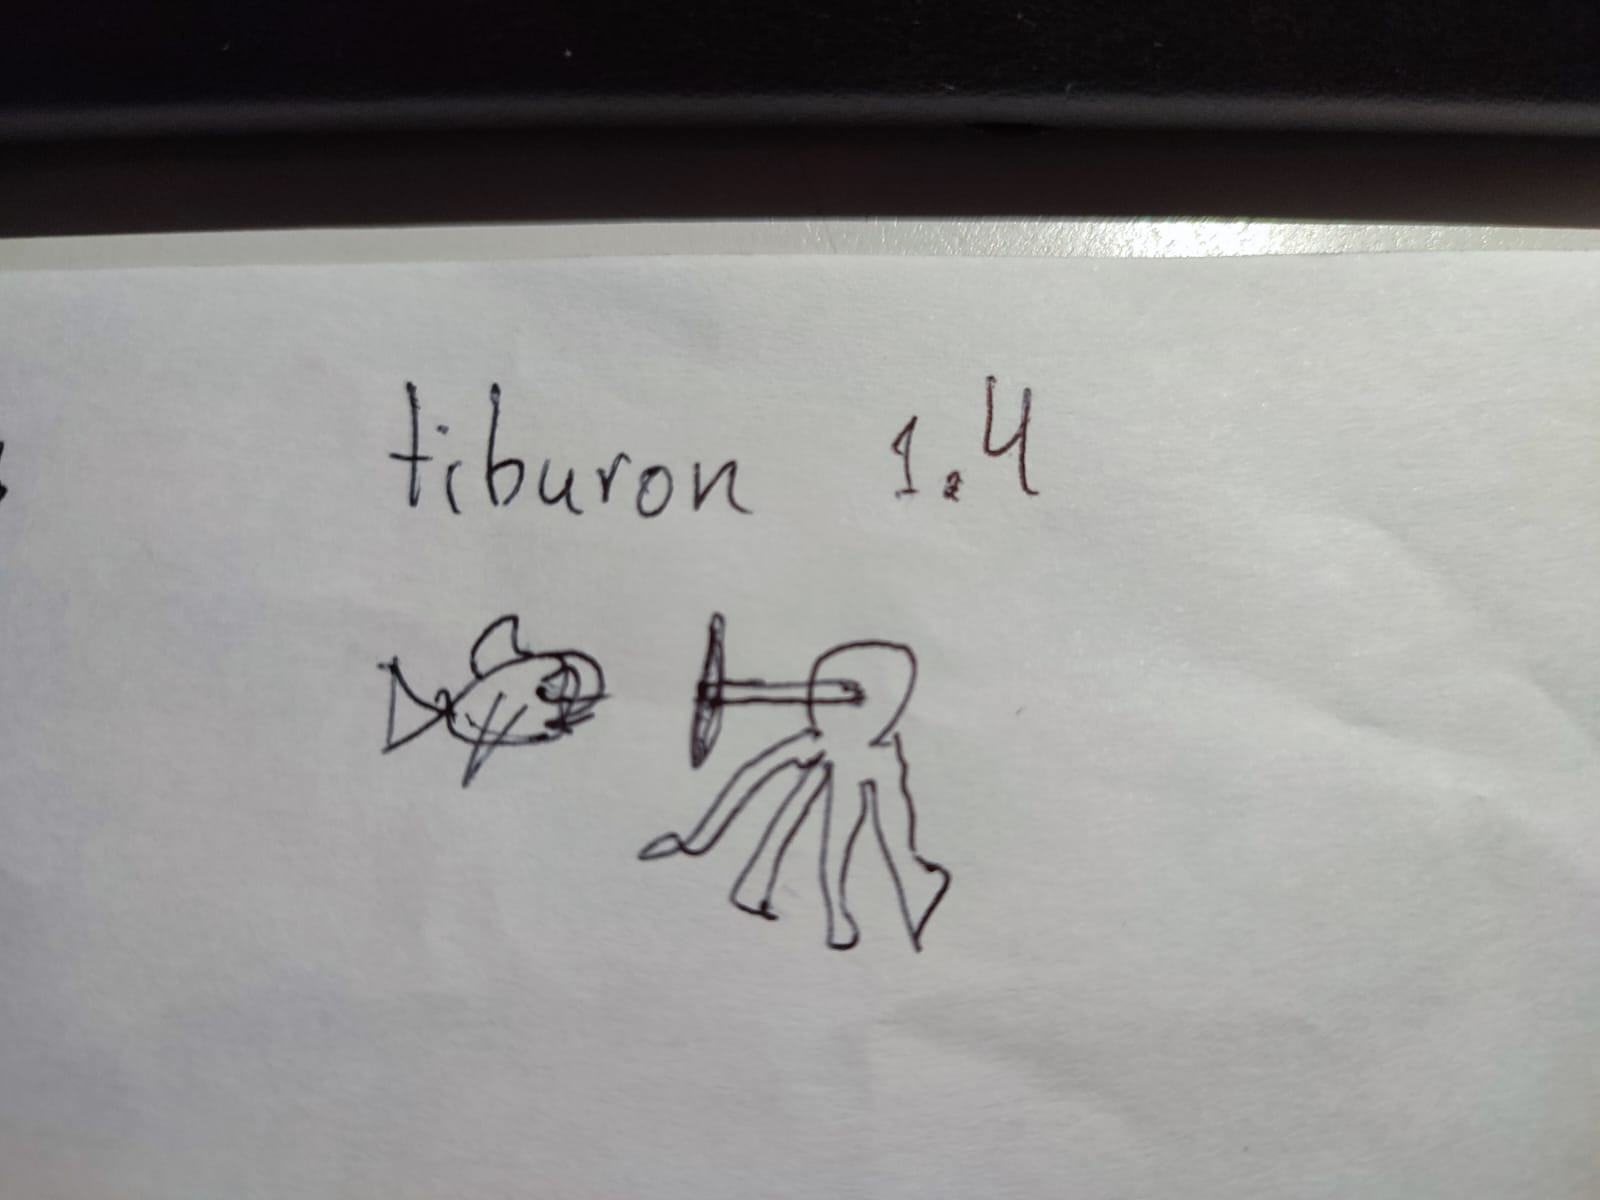 tiburon 1.4